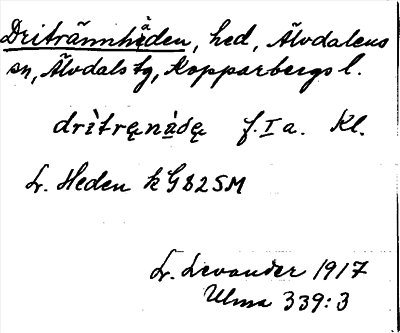 Dritrännhéden, hed, Älvdalens
sn, Älvdals tg, Kopparbergs l.
drìtręnàðę f. I a. Kl.
Lr. Heden k G82SM
Lr. Levander 1917
Ulma 339:3